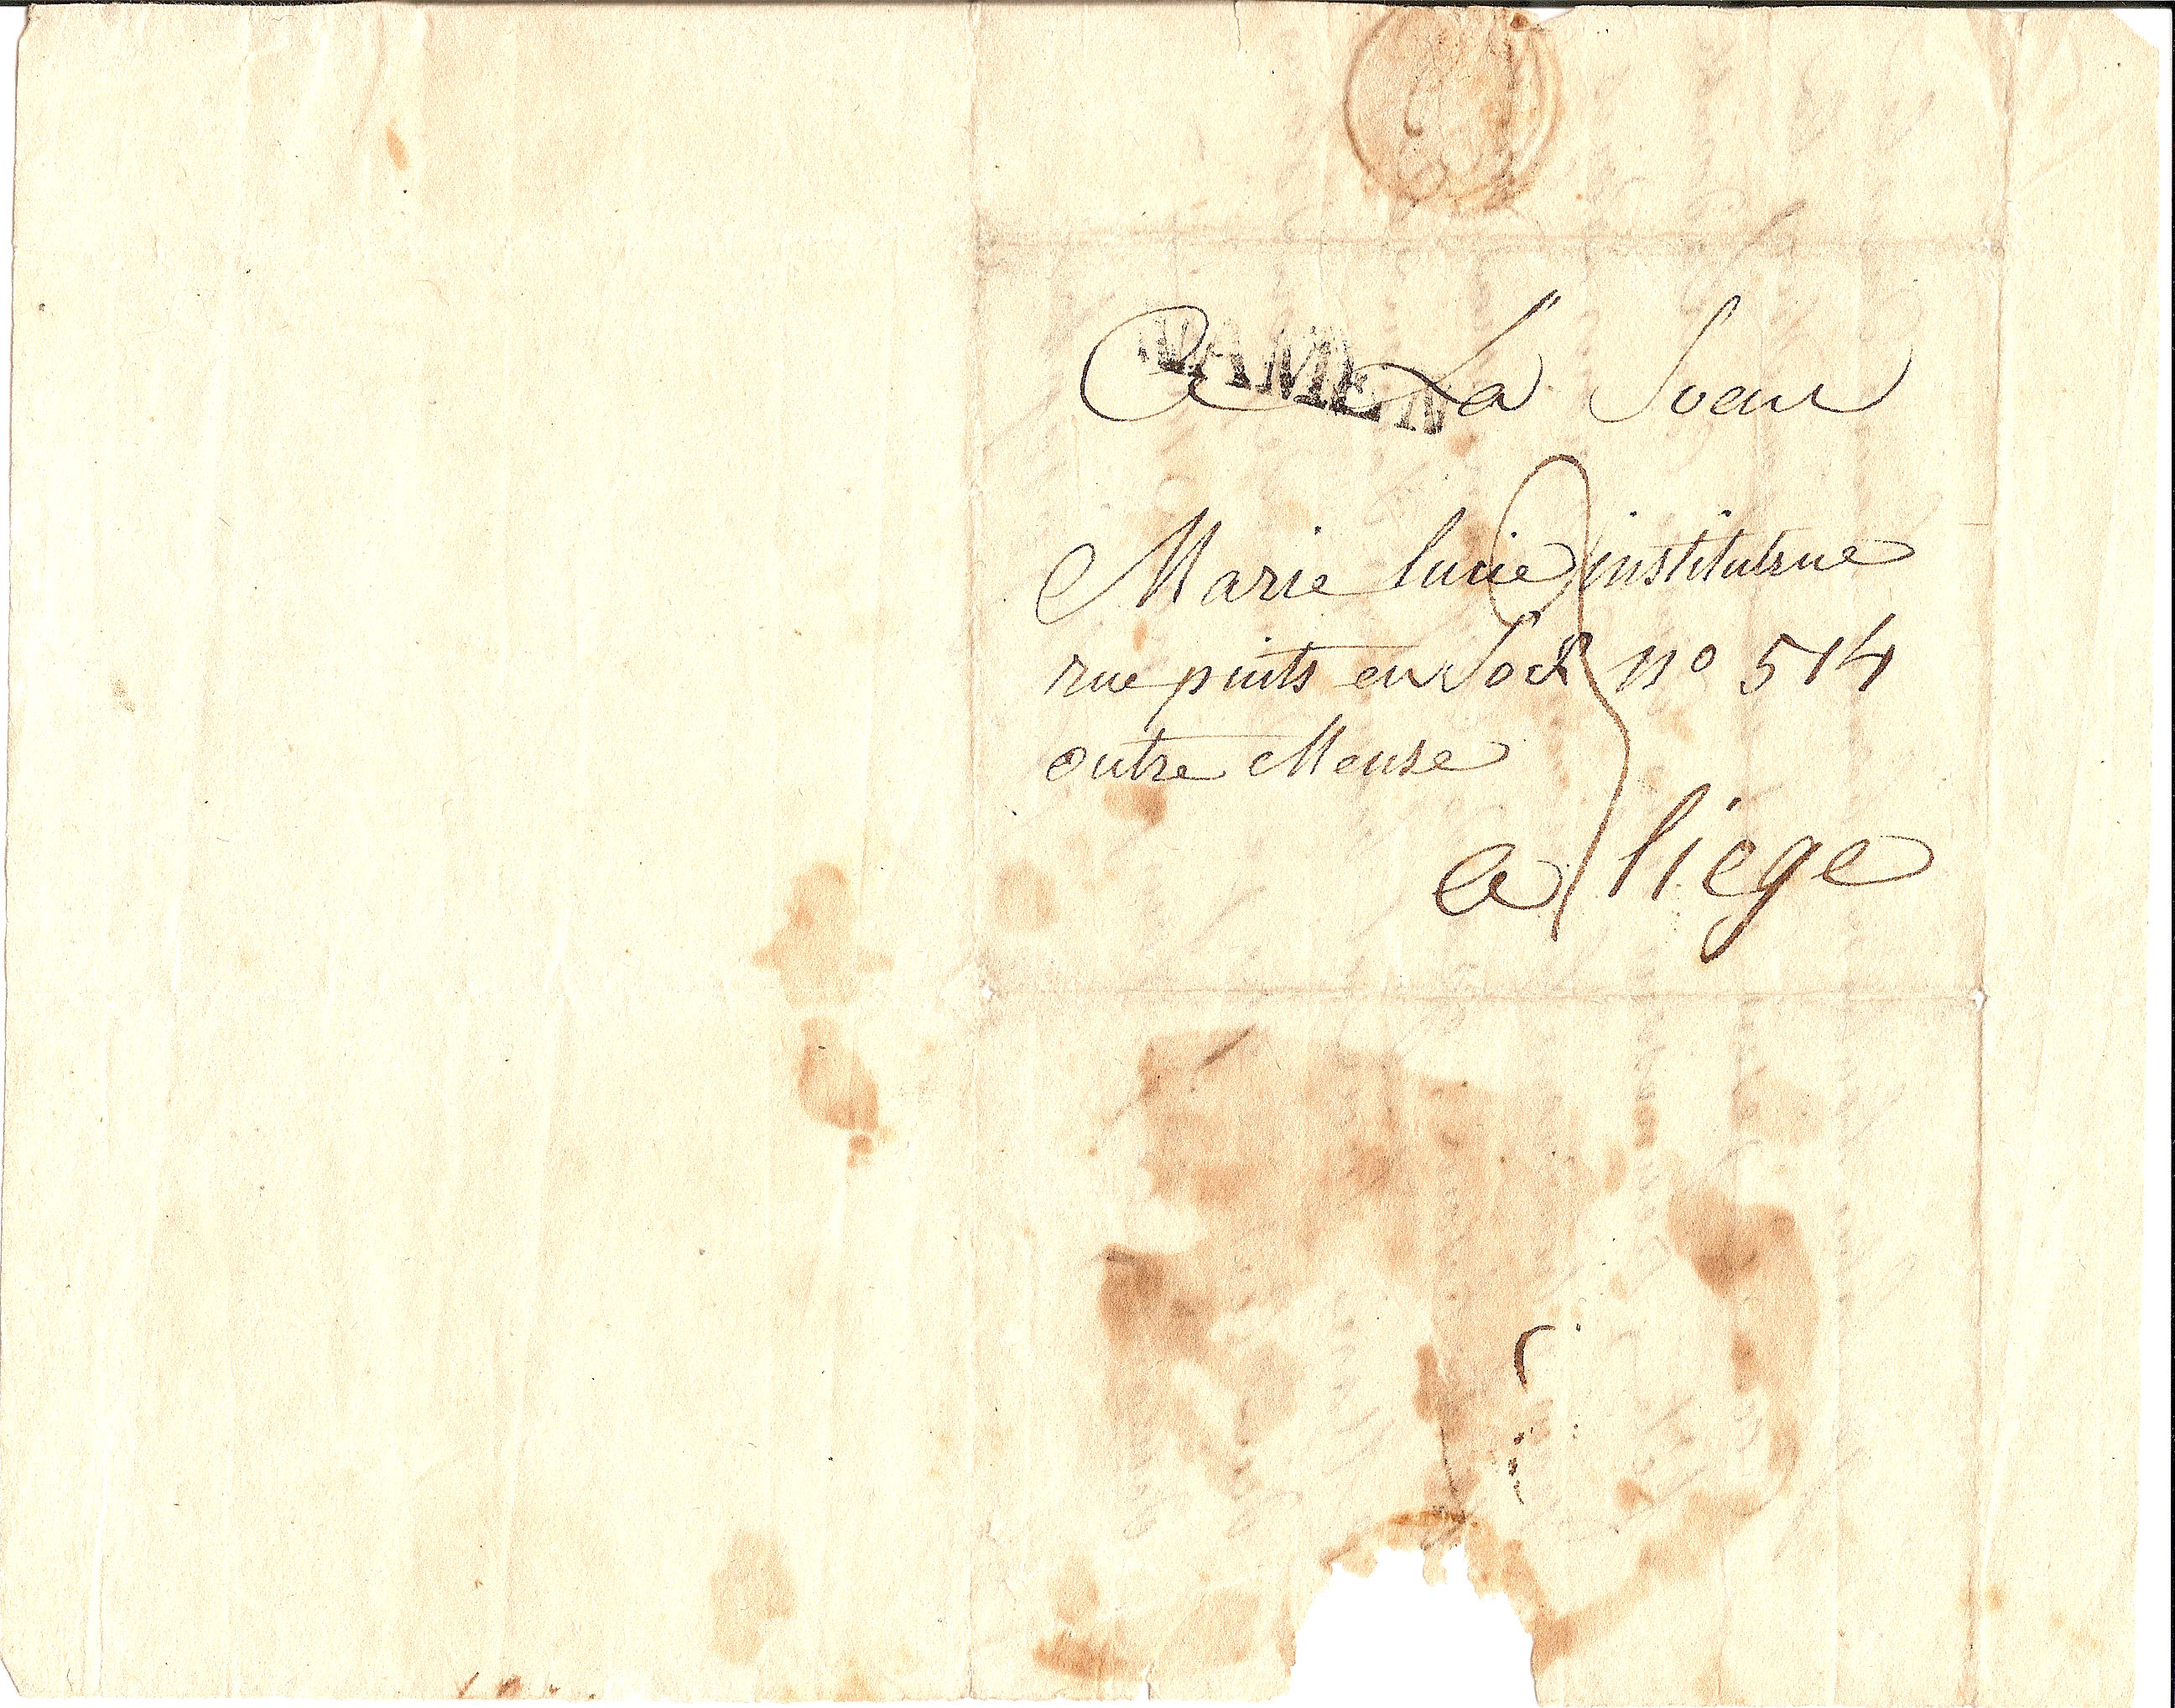 NAMEN
A La Soeur
Marie lucie institutrice
rue puits en Sock no 514
outre Meuse
a liege